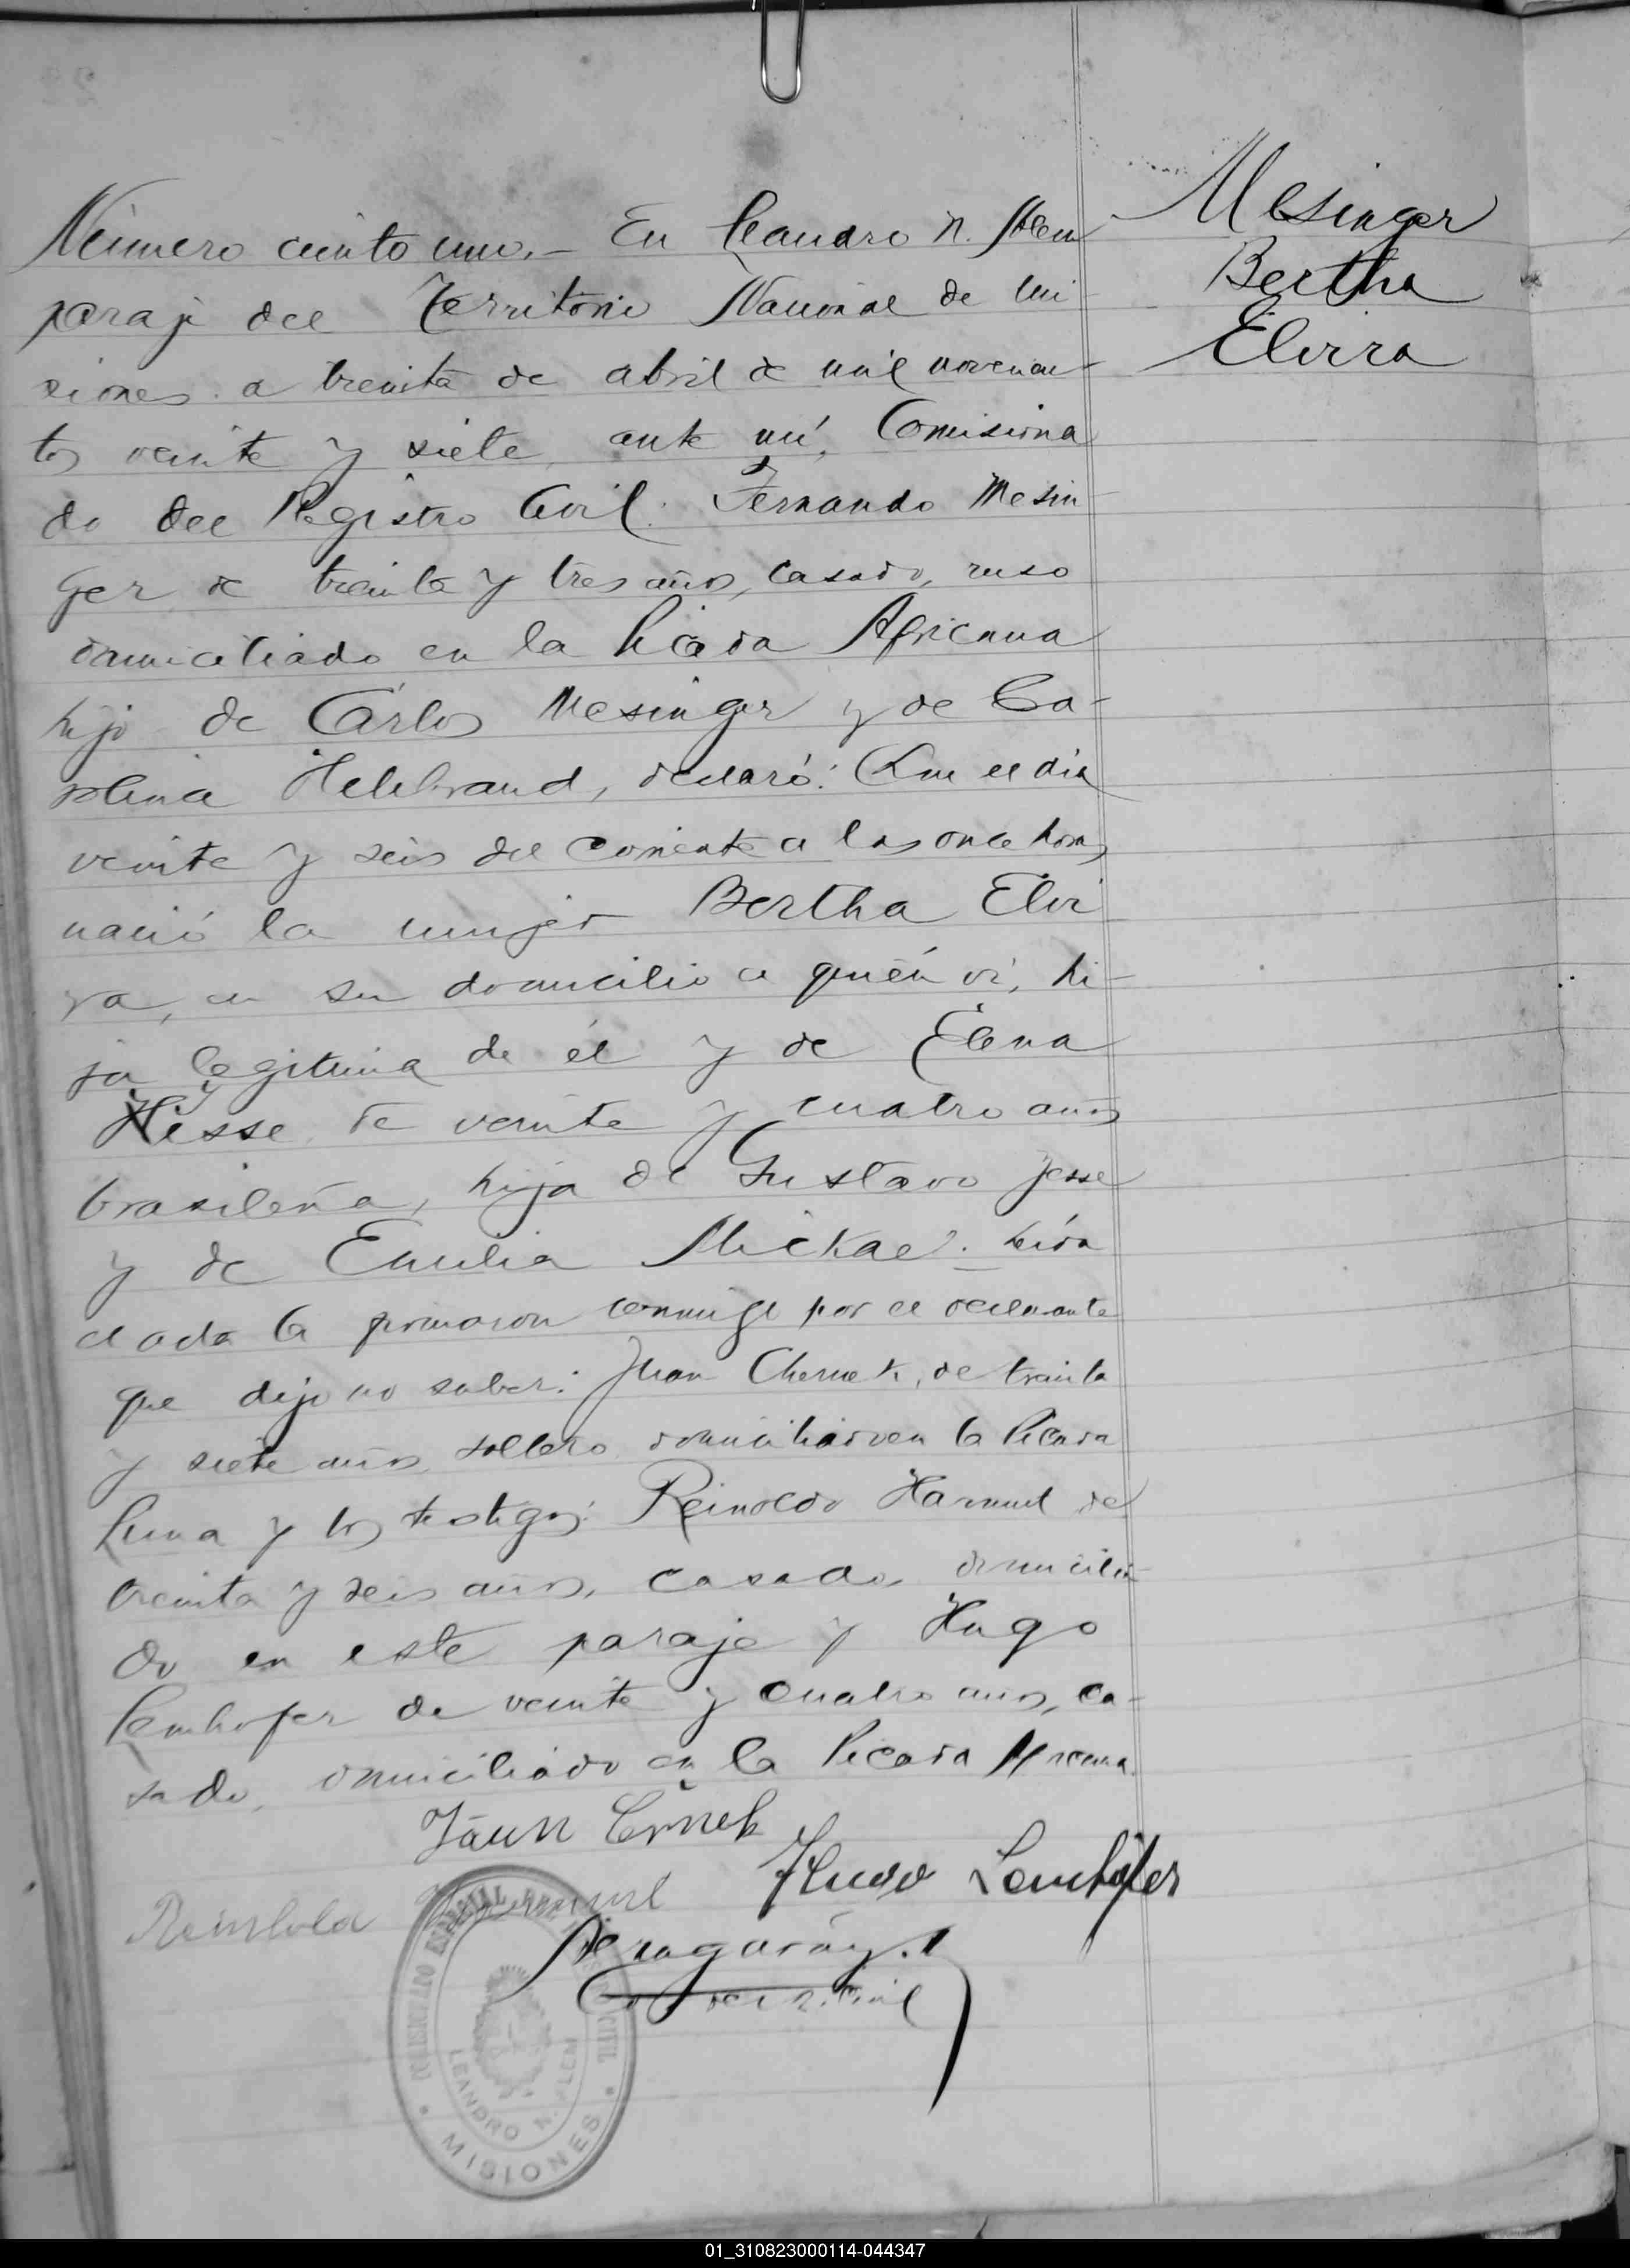 Mesinger
Bertha
Elvira
Número ciento uno.- En Leandro N. Alem
paraje del Territorio Nacional de Mi-
siones a treinta de abril de mil novecien-
tos veinte y siete, ante mí, Comisiona
do del Registro Civil: Fernando Mesin-
ger, de treinta y tres años, casado, ruso
domiciliado en la Picada Africana
hijo de Cárlos Mesinger y de Ca-
rolina Helebrand, declaró: Que el día
veinte y seis del corriente a las once horas
nació la mujer Bertha Elvi
ra, en su domicilio a quién ví, hi-
ja legitima de él y de Elena
Hesse de veinte y cuatro años
brasileña, hija de Gustavo Jesse
y de Emilia Mickael. Leída
el acta la firmaron conmigo por el declarante
que dijo no saber: Juan Chernek, de treinta
y siete años soltero domiciliado en la Picada
Luna y los testigos: Reinoldo Hammel de
treinta y seis años, casado, domicilia-
do en este paraje y Hugo
Lemhofer de veinte y cuatro años, ca-
sado, domiciliado en la Picada
Hugo Lemhofer
Reinhold
COMISIONADO ESPECIAL DEL REGISTRO CIVIL
LEANDRO N. ALEM
MISIONES
01_310823000114-044347